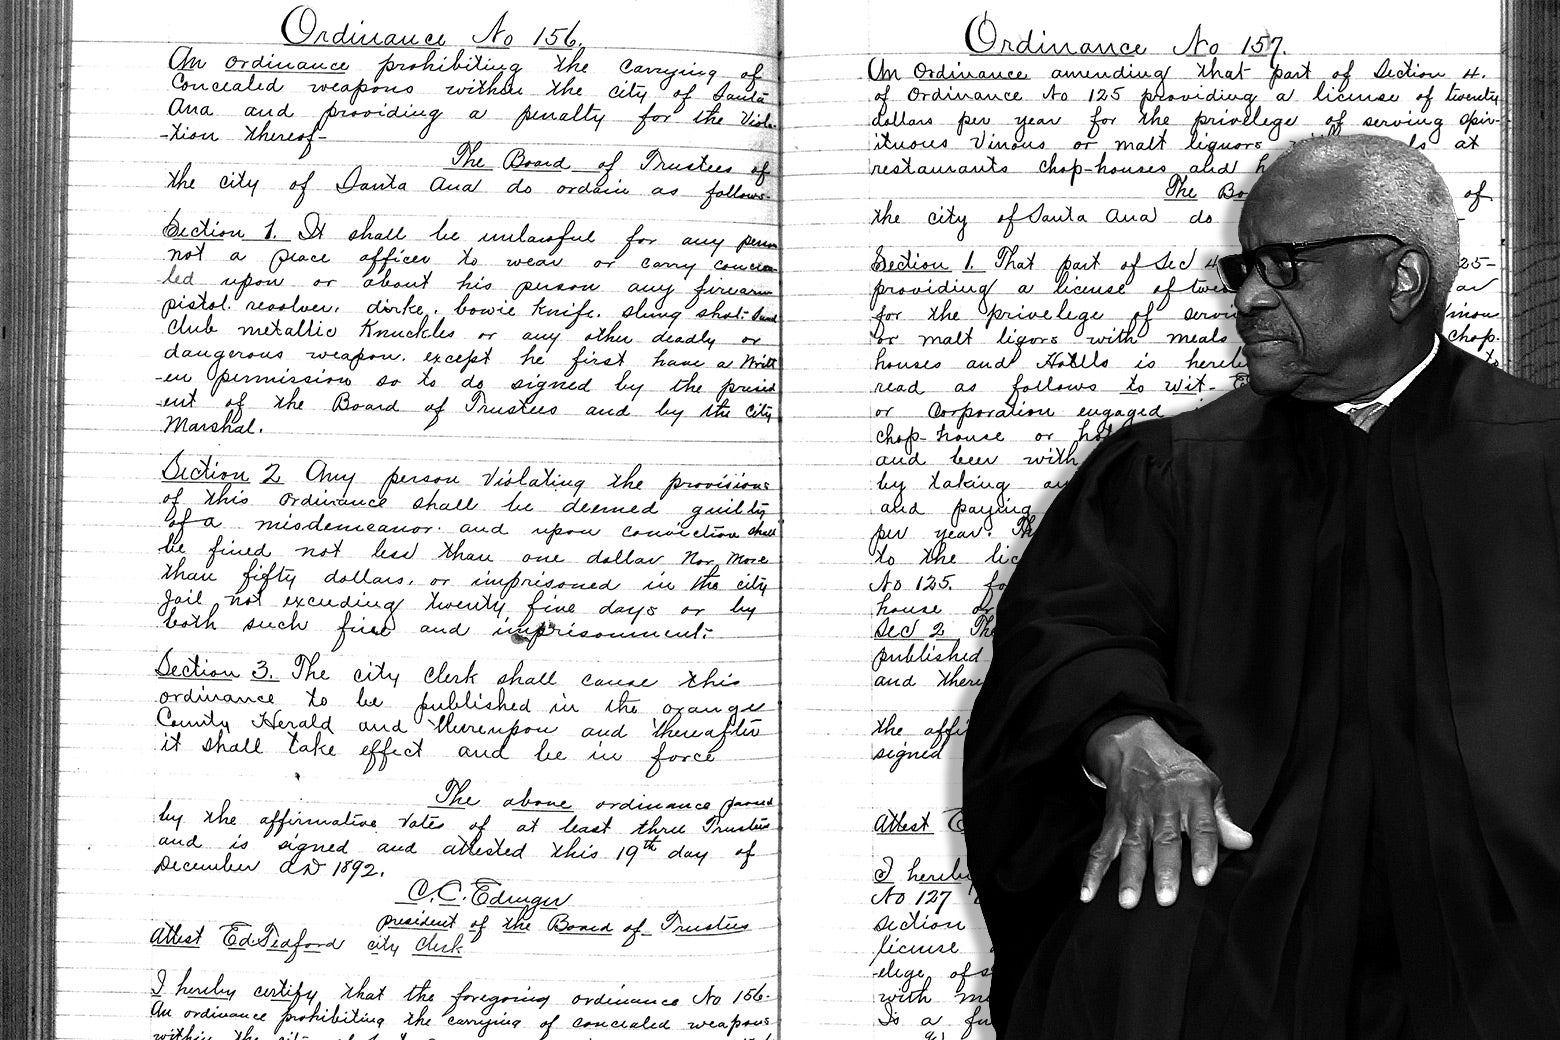 Ordinance No 156.
An ordinance prohibiting the carrying of
Concealed weapons within the city of Santa
Ana and providing a penalty for the Viola-
-tion thereof-
The Board of Trustees of
the city of Santa Ana do ordain as follows-
Section 1. It shall be unlawful for any person
not a peace officer to wear or carry concea-
led upon or about his person any firearm
pistol. revolver. dirke. bowie knife. slung shot. Sand
Club metallic Knuckles or any other deadly or
dangerous weapon. except he first have a Writt
-en permission so to do signed by the presid
-ent of the Board of Trustees and by the City
Marshal.
Section 2 Any person Violating the provisions
of this ordinance shall be deemed guilty
of a misdemeanor. and upon conviction shall
be fined not less than one dollar nor more
than fifty dollars. or imprisoned in the city
Jail not exceeding twenty five days or by
both such fine and imprisonment.
Section 3. The city Clerk shall cause this
ordinance to be published in the orange
County Herald and thereupon and thereafter
it shall take effect and be in force
The above ordinance passed
by the affirmative votes of at least three Trustees
and is signed and attested this 19th day of
December AD 1892.
C.C. Edinger
president of the Board of Trustees
Attest Ed Tedford city Clerk
I hereby certify that the foregoing ordinance No 156.
An ordinance prohibiting the carrying of concealed weapons
within the city of
Ordinance No 157.
An Ordinance amending that part of Section 4.
of Ordinance No 125 providing a license of twenty
dollars per year for the privelege of serving spir-
ituous Vinous or malt liquors at
restaurants chop-houses and
The of
the city of Santa Ana do
Section 1. That part of Sec 4 25-
providing a license of
for the privelege of
or malt ligors with meals chop-
houses and Hotells is to
read as follows to wit-
or corporation engaged
chop-house or
and beer with
by taking
and paying
per year.
to the
No 125.
house or
Sec 2
published
and
the
signed
Attest
I
No 127
section
license
-elege
with
Is a